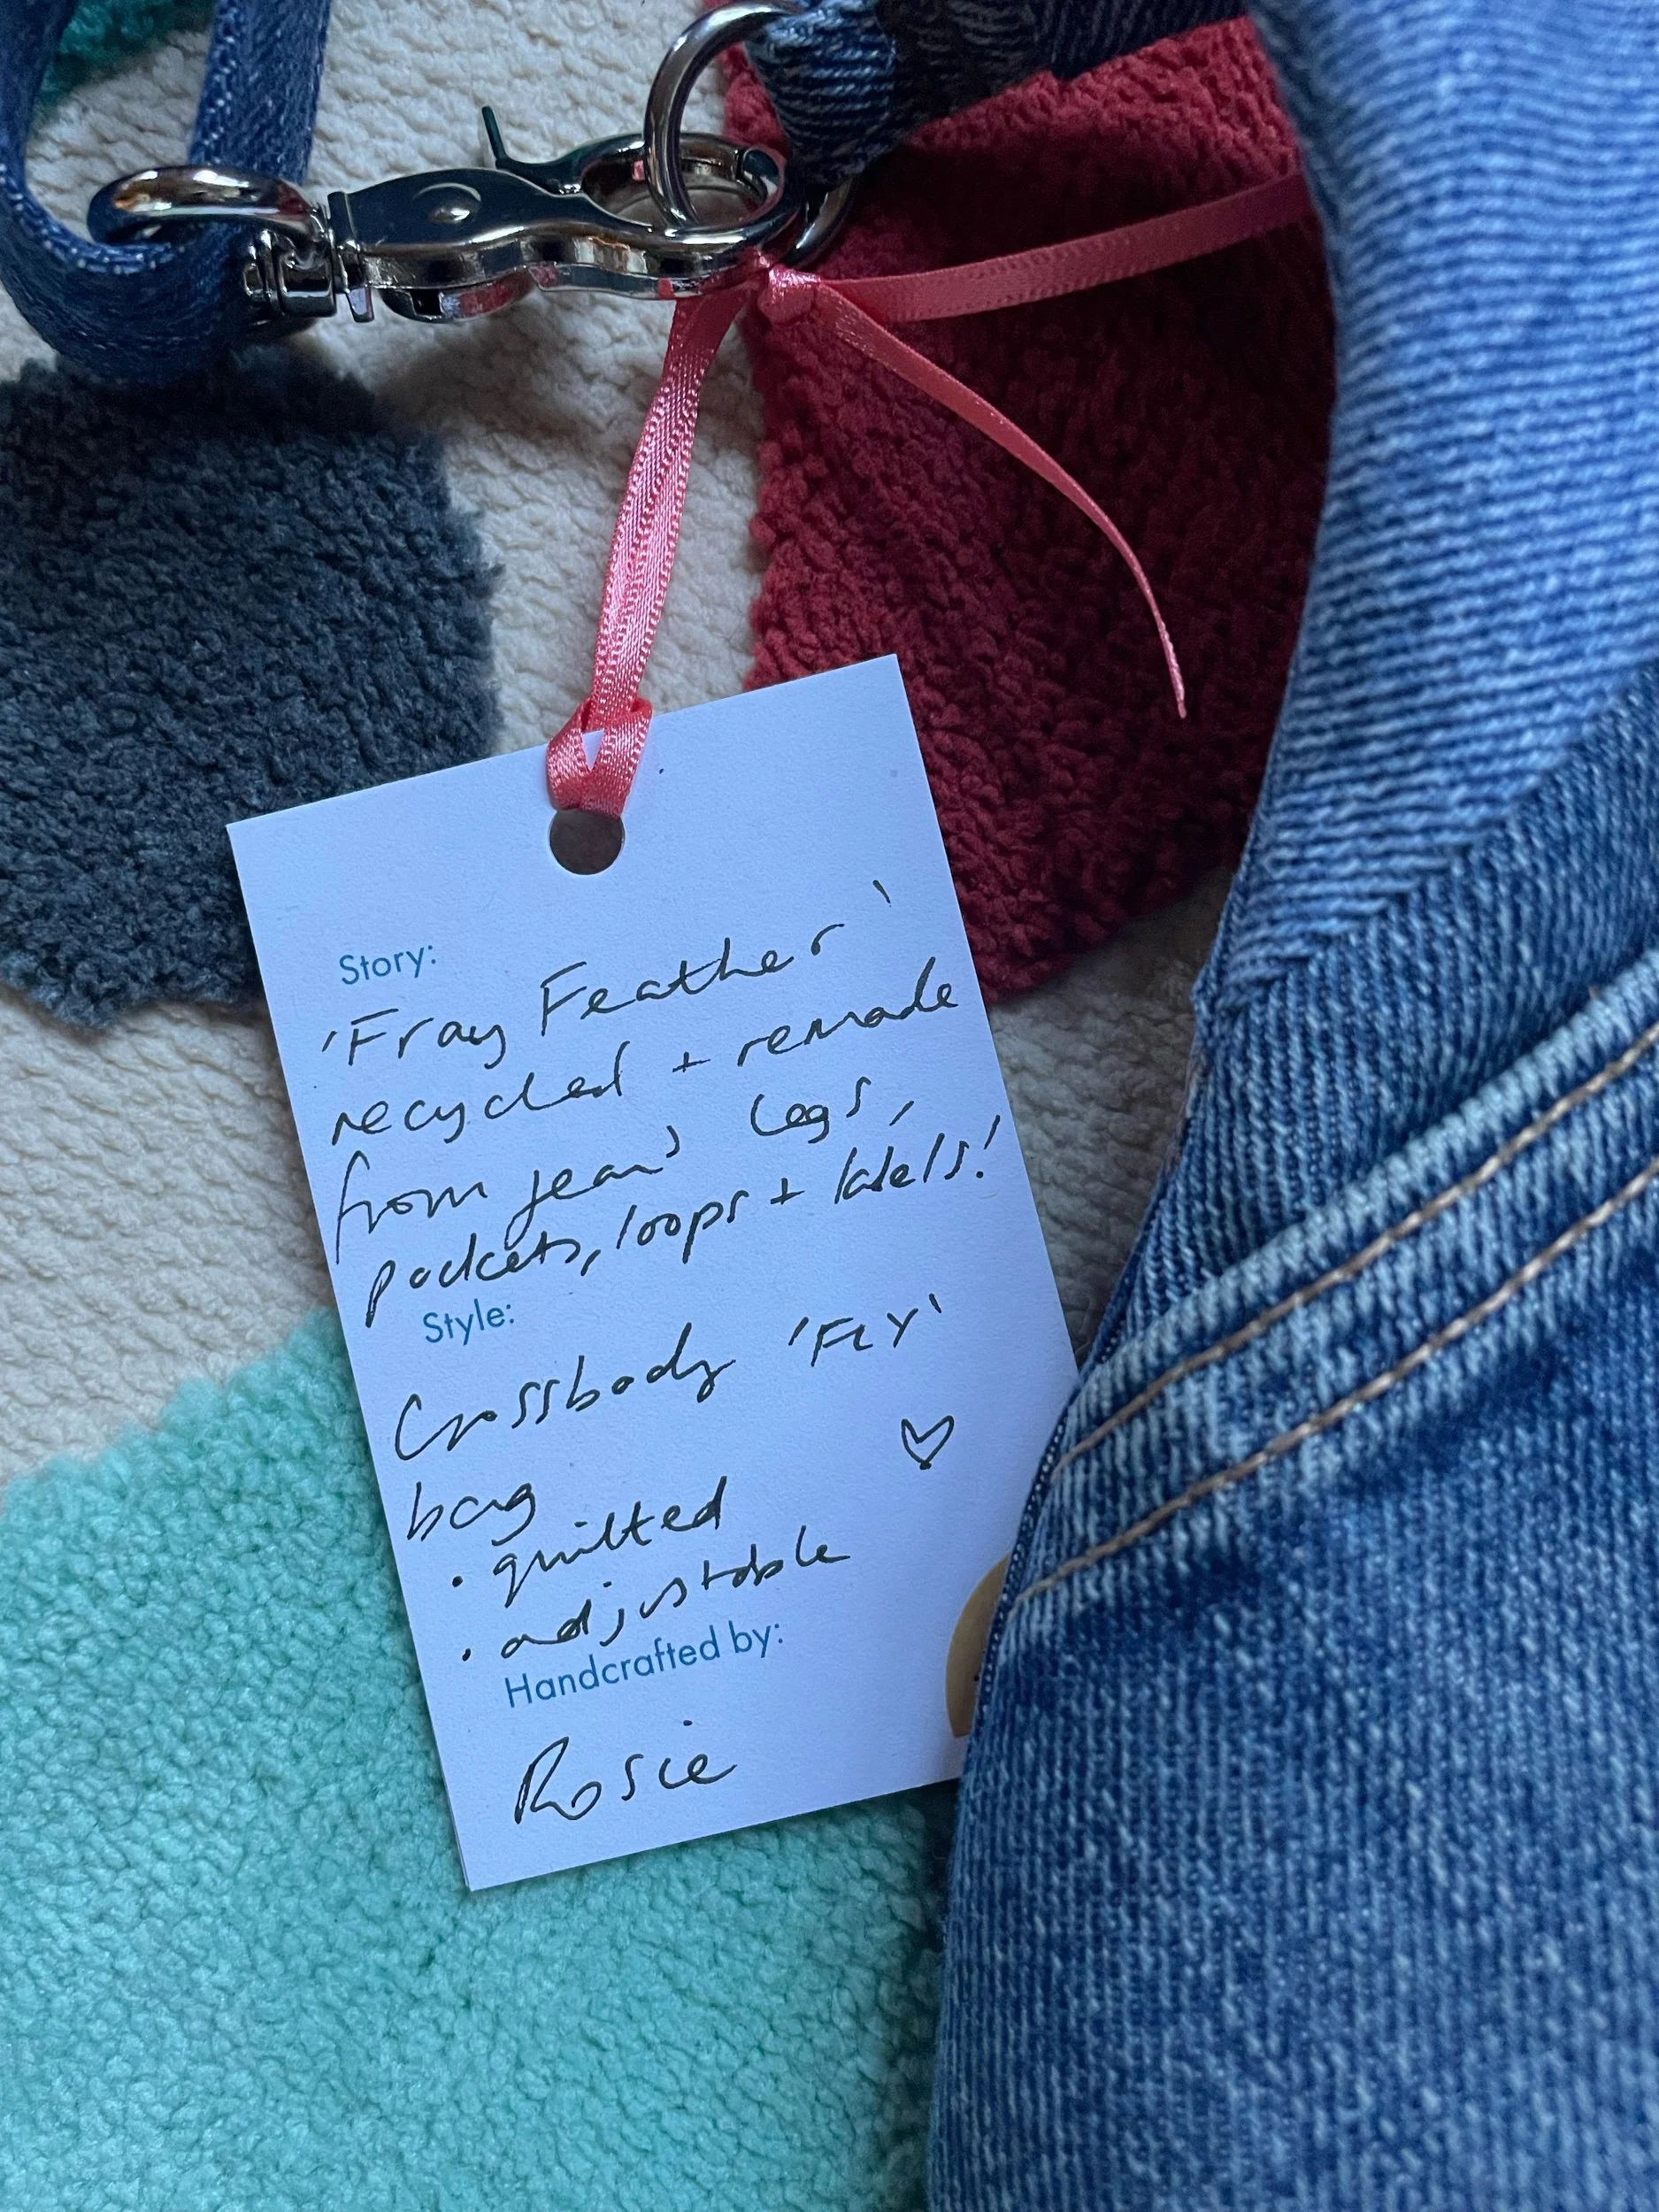 Story:
'Fray Feather'
recycled + remade
from jeans legs,
pockets, loops + labels!
Style:
Crossbody 'FLY'
bag
• quilted
• adjustable
Handcrafted by:
Rosie